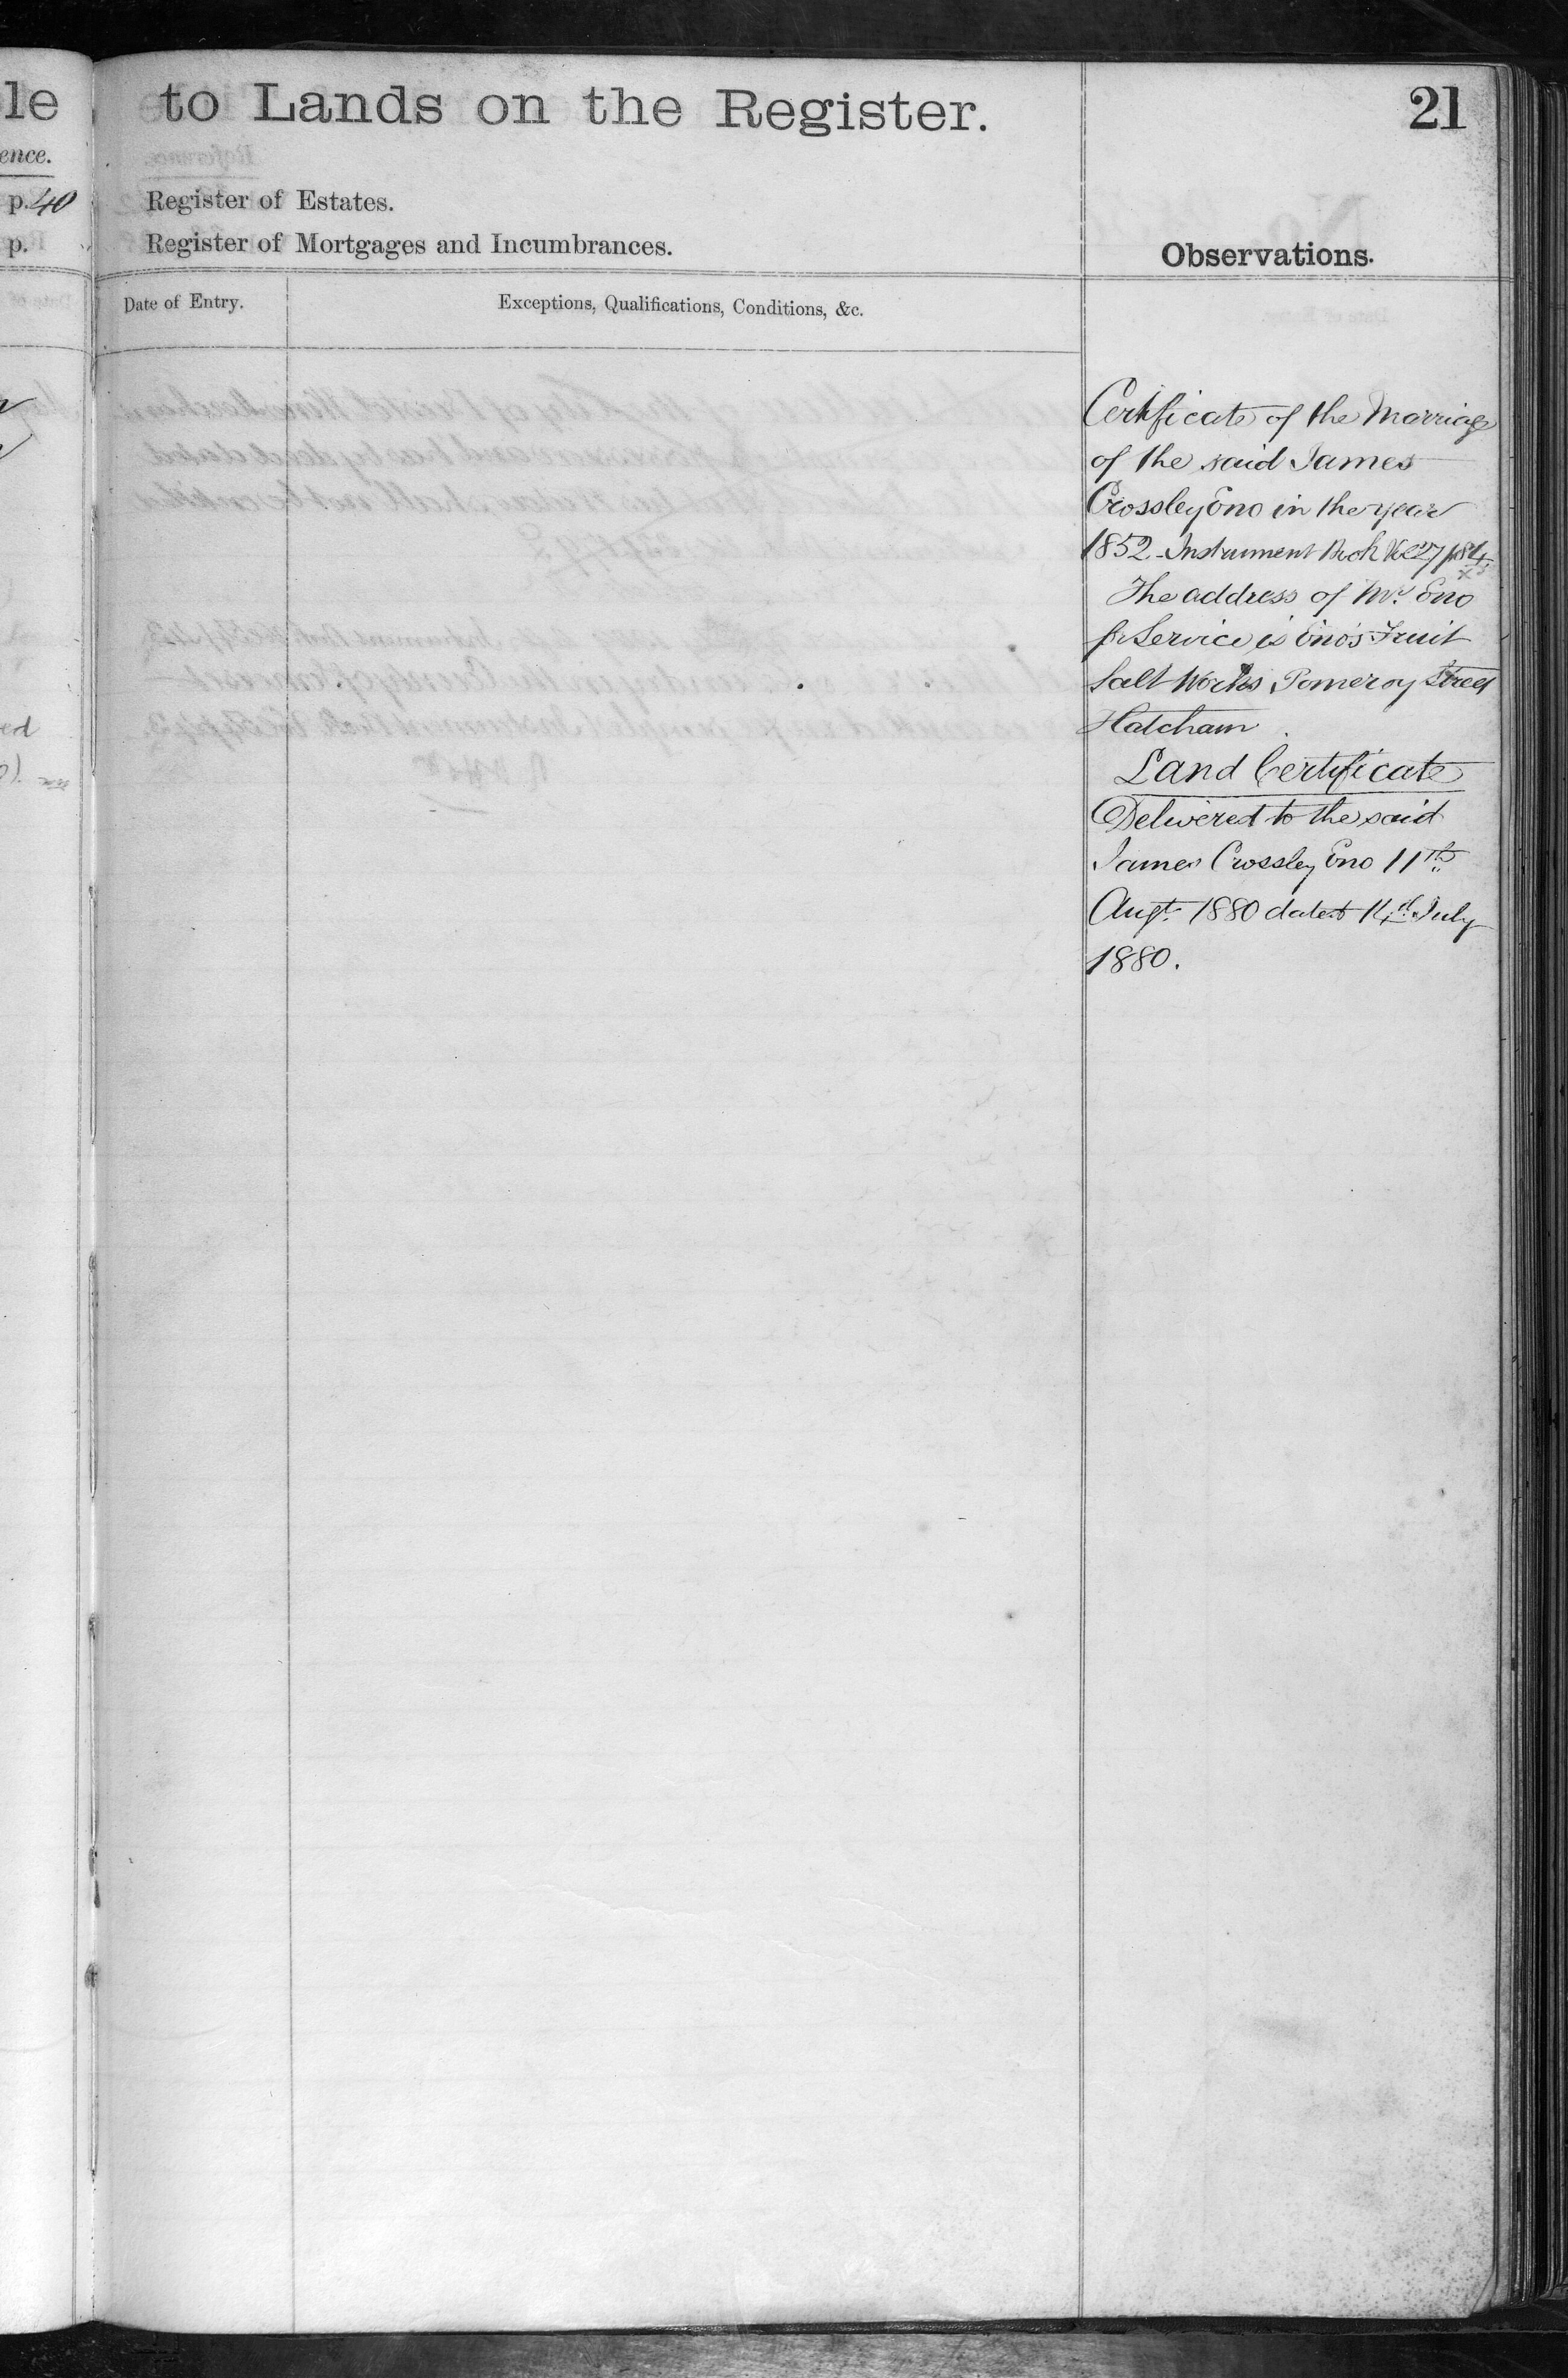 le
ence.
p. 40
p.
ed
to Lands on the Register.
21
Register of Estates.
Register of Mortgages and Incumbrances.
Observations.
Date of Entry.
Exceptions, Qualifications, Conditions, &c.
Certificate of the Marriage
of the said James
Crossley Eno in the year
1852. Instrument Book Vol 27 p 84
The address of Mr. Eno
for Service is Eno's Fruit
Salt Works Pomeroy Street
Hatcham
Land Certificate
Delivered to the said
James Crossley Eno 11th
Augt. 1880 dated 14th July
1880.